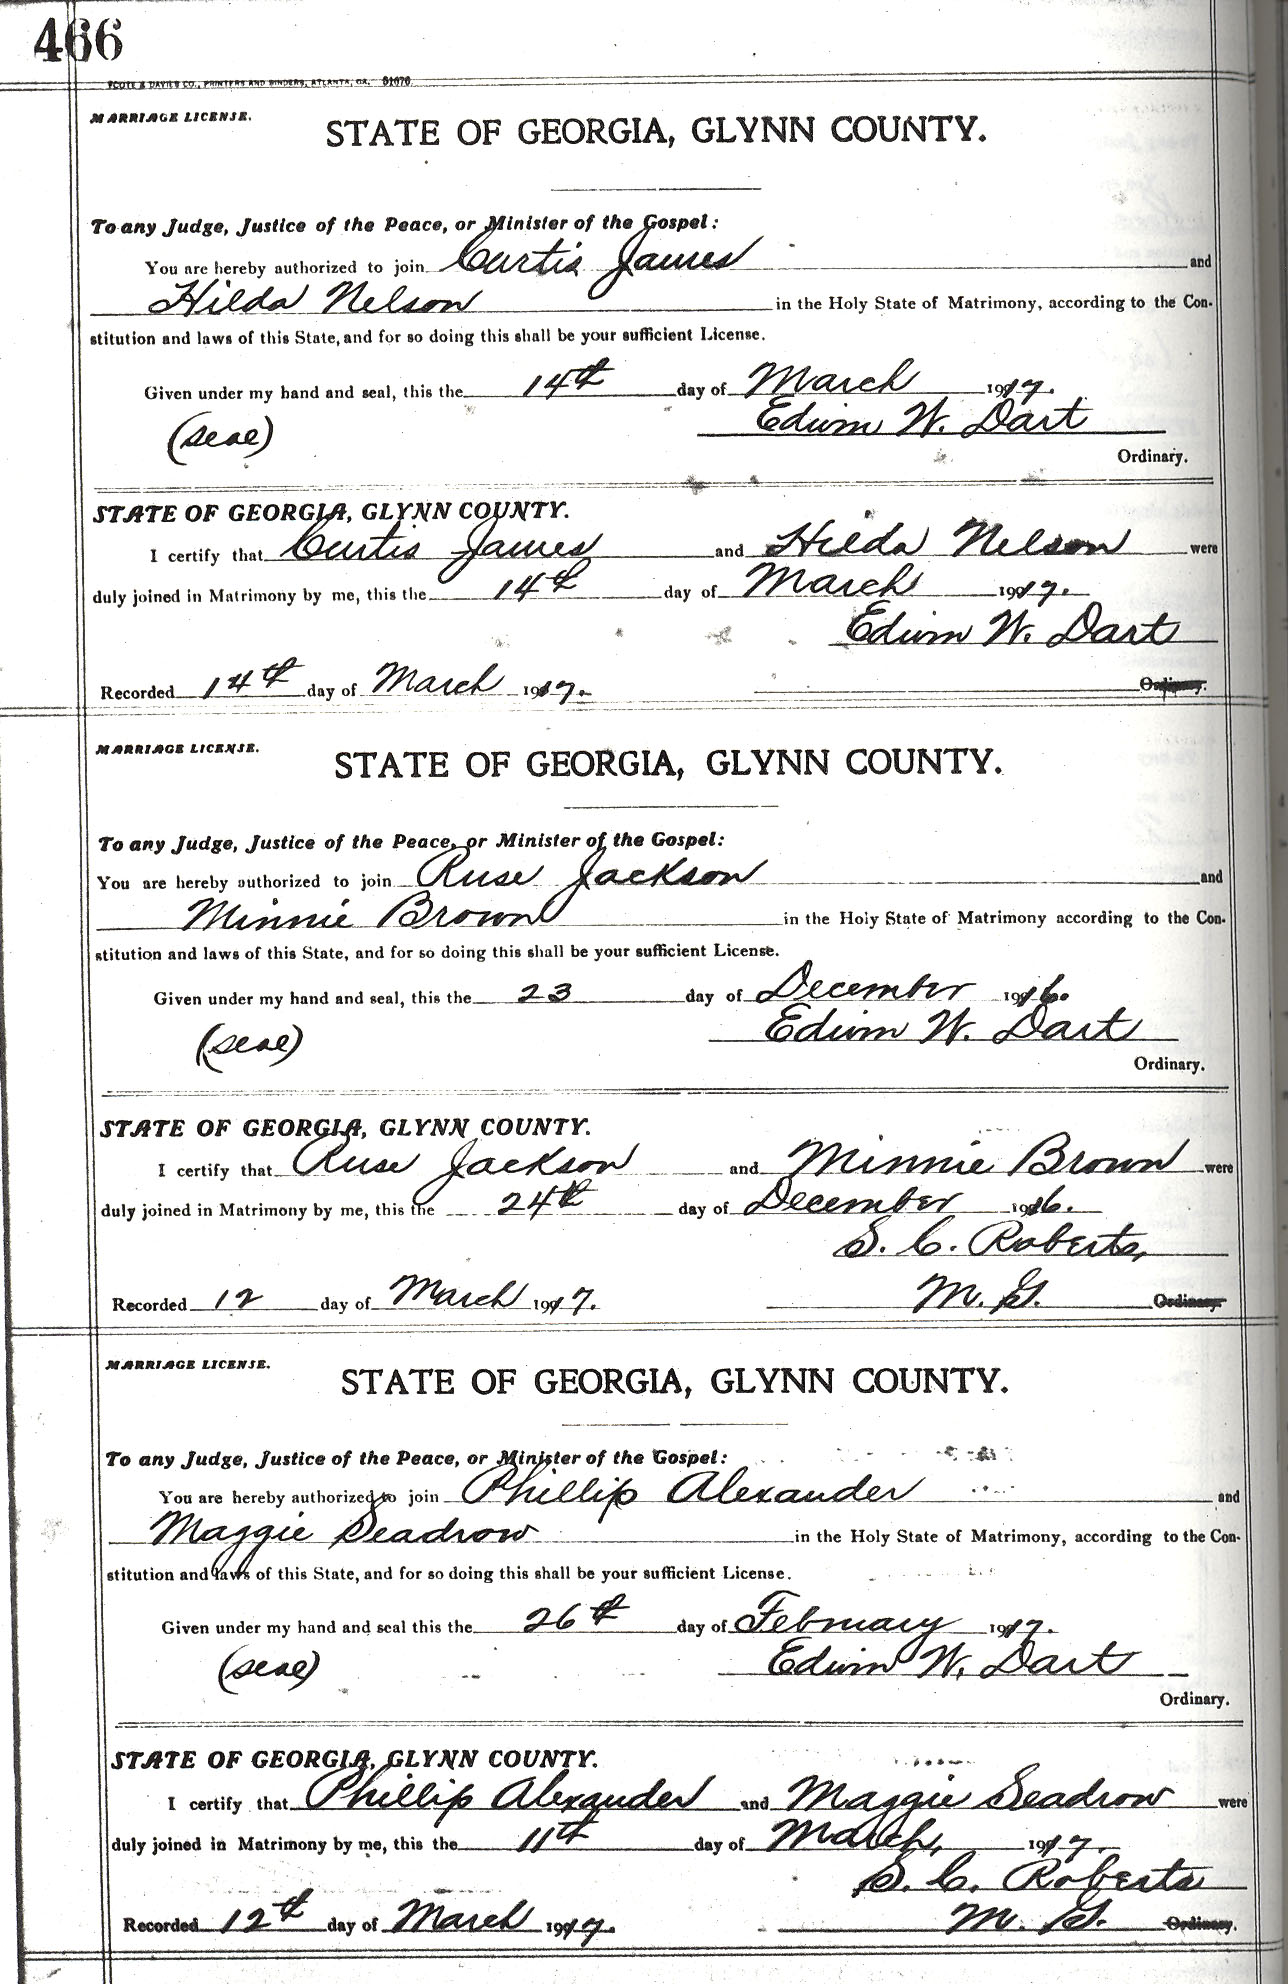 466
FOOTE & DAVIES CO., PRINTERS AND BINDERS, ATLANTA, GA.
MARRIAGE LICENSE.
STATE OF GEORGIA, GLYNN COUNTY.
To any Judge, Justice of the Peace, or Minister of the Gospel:
You are hereby authorized to join Curtis James and
Hilda Nelson in the Holy State of Matrimony, according to the Con-
stitution and laws of this State, and for so doing this shall be your sufficient License.
Given under my hand and seal, this the 14th day of March 1917.
(seal) Edwin W. Dart
Ordinary.
STATE OF GEORGIA, GLYNN COUNTY.
I certify that Curtis James and Hilda Nelson were
duly joined in Matrimony by me, this the 14th day of March 1917.
Edwin W. Dart
Recorded 14th day of March 1917. Ordinary.
MARRIAGE LICENSE.
STATE OF GEORGIA, GLYNN COUNTY.
To any Judge, Justice of the Peace, or Minister of the Gospel:
You are hereby authorized to join Ruse Jackson and
Minnie Brown in the Holy State of Matrimony according to the Con-
stitution and laws of this State, and for so doing this shall be your sufficient License.
Given under my hand and seal, this the 23 day of December 1916.
(seal) Edwin W. Dart
Ordinary.
STATE OF GEORGIA, GLYNN COUNTY.
I certify that Ruse Jackson and Minnie Brown were
duly joined in Matrimony by me, this the 24th day of December 1916.
S. C. Roberts,
Recorded 12 day of March 1917. M. G. Ordinary.
MARRIAGE LICENSE.
STATE OF GEORGIA, GLYNN COUNTY.
To any Judge, Justice of the Peace, or Minister of the Gospel:
You are hereby authorized to join Phillip Alexander and
Maggie Seadrow in the Holy State of Matrimony, according to the Con-
stitution and laws of this State, and for so doing this shall be your sufficient License.
Given under my hand and seal this the 26th day of February 1917.
(seal) Edwin W. Dart
Ordinary.
STATE OF GEORGIA, GLYNN COUNTY.
I certify that Phillip Alexander and Maggie Seadrow were
duly joined in Matrimony by me, this the 11th day of March, 1917.
S. C. Roberts
Recorded 12th day of March 1917. M. G. Ordinary.